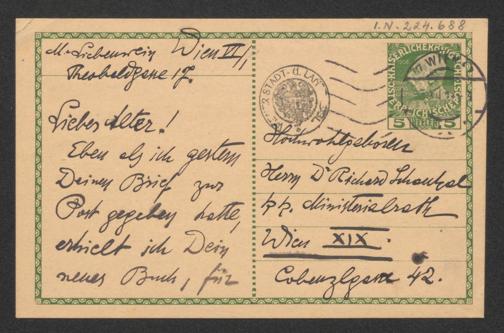 I.N. 224.688
M. Liebenwein Wien VI/1
Theobaldgasse 17.
Lieber Alter!
Eben als ich gestern
Deinen Brief zur
Post gegeben hatte,
erhielt ich Dein
neues Buch, für
WIEN
5 5
STADT- U. LAN
Hochwohlgeboren
Herrn Dr Richard Schaukal
p.p. Ministerialrath
Wien XIX.
Cobenzlgasse 42.